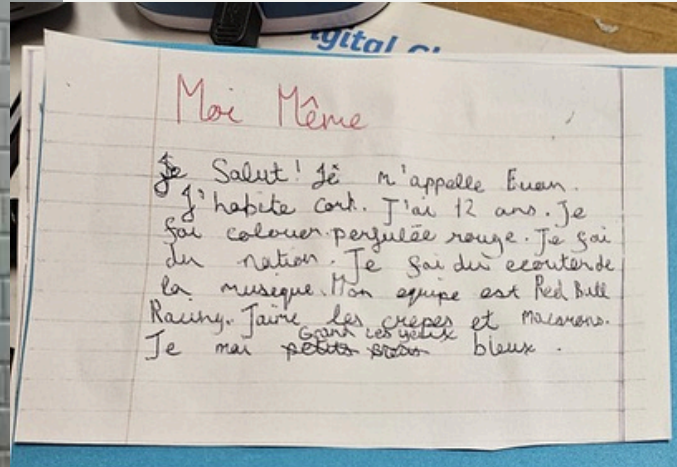 igital
Moi Même
Je Salut! Je m'appelle Euan.
J'habite Cork. J'ai 12 ans. Je
fai colouer perfulée rouge. Je fai
du nation. Je fai du ecouter de
la museque. Mon equipe est Red Bull
Racing. J'aime les crepes et macarons.
Grand Les yeux
Je mai petits bleux.